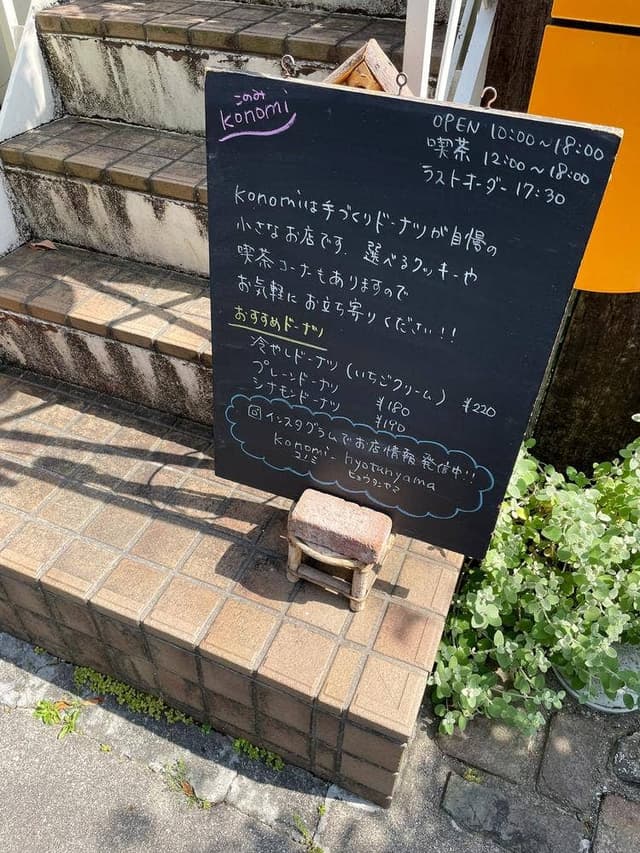 このみ
konomi
OPEN 10:00～18:00
喫茶 12:00～18:00
ラストオーダー 17:30
konomiは手づくりドーナツが自慢の
小さなお店です。選べるクッキーや
喫茶コーナーもありますので
お気軽にお立ち寄りください!!
おすすめドーナツ
冷やしドーナツ(いちごクリーム) ¥220
プレーンドーナツ ¥180
シナモンドーナツ ¥190
インスタグラムでお店情報発信中!!
konomi-hyotanyama
コノミ ヒョウタンヤマ